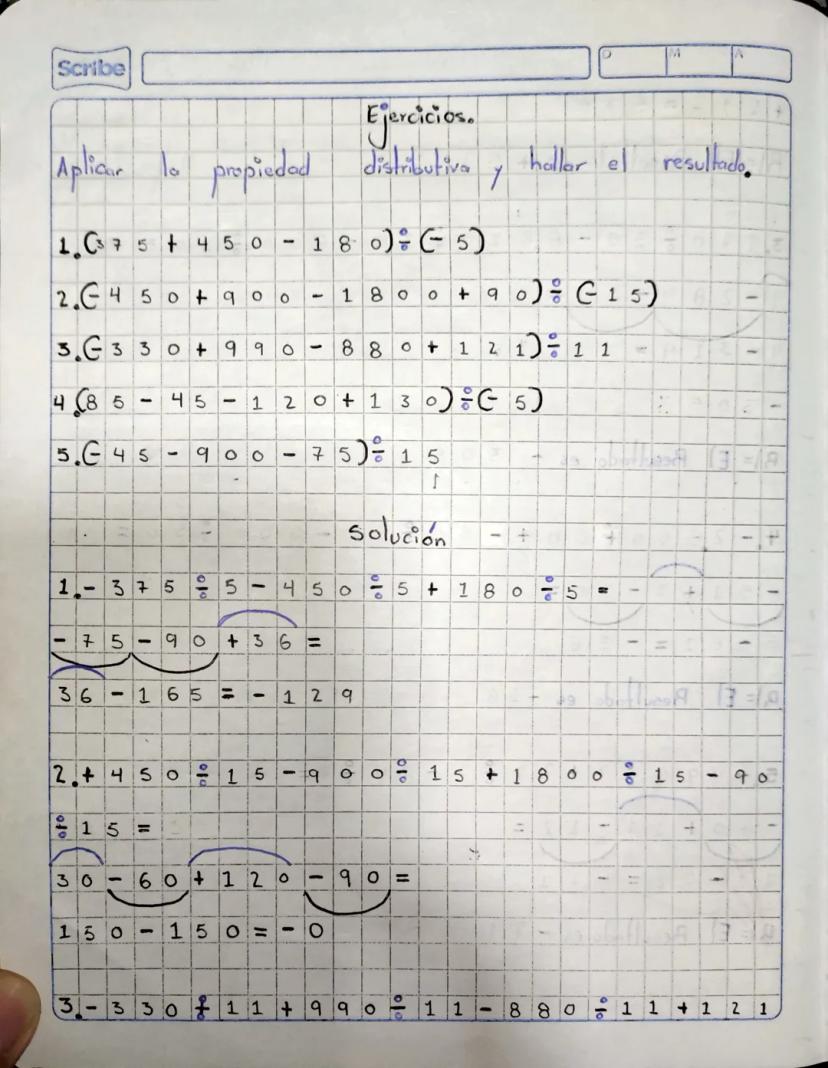 Scribe
D M A
Ejercicios.
Aplicar la propiedad distributiva y hallar el resultado.
1.(375+450-180)÷(-5)
2.(-450+900-1800+90)÷(-15)
3.(-330+990-880+121)÷11
4.(85-45-120+130)÷(-5)
5.(-45-900-75)÷15
Solución
1.-375÷5-450÷5+180÷5=
-75-90+36=
36-165=-129
2.+450÷15-900÷15+1800÷15-90
÷15=
30-60+120-90=
150-150=-0
3.-330÷11+990÷11-880÷11+121